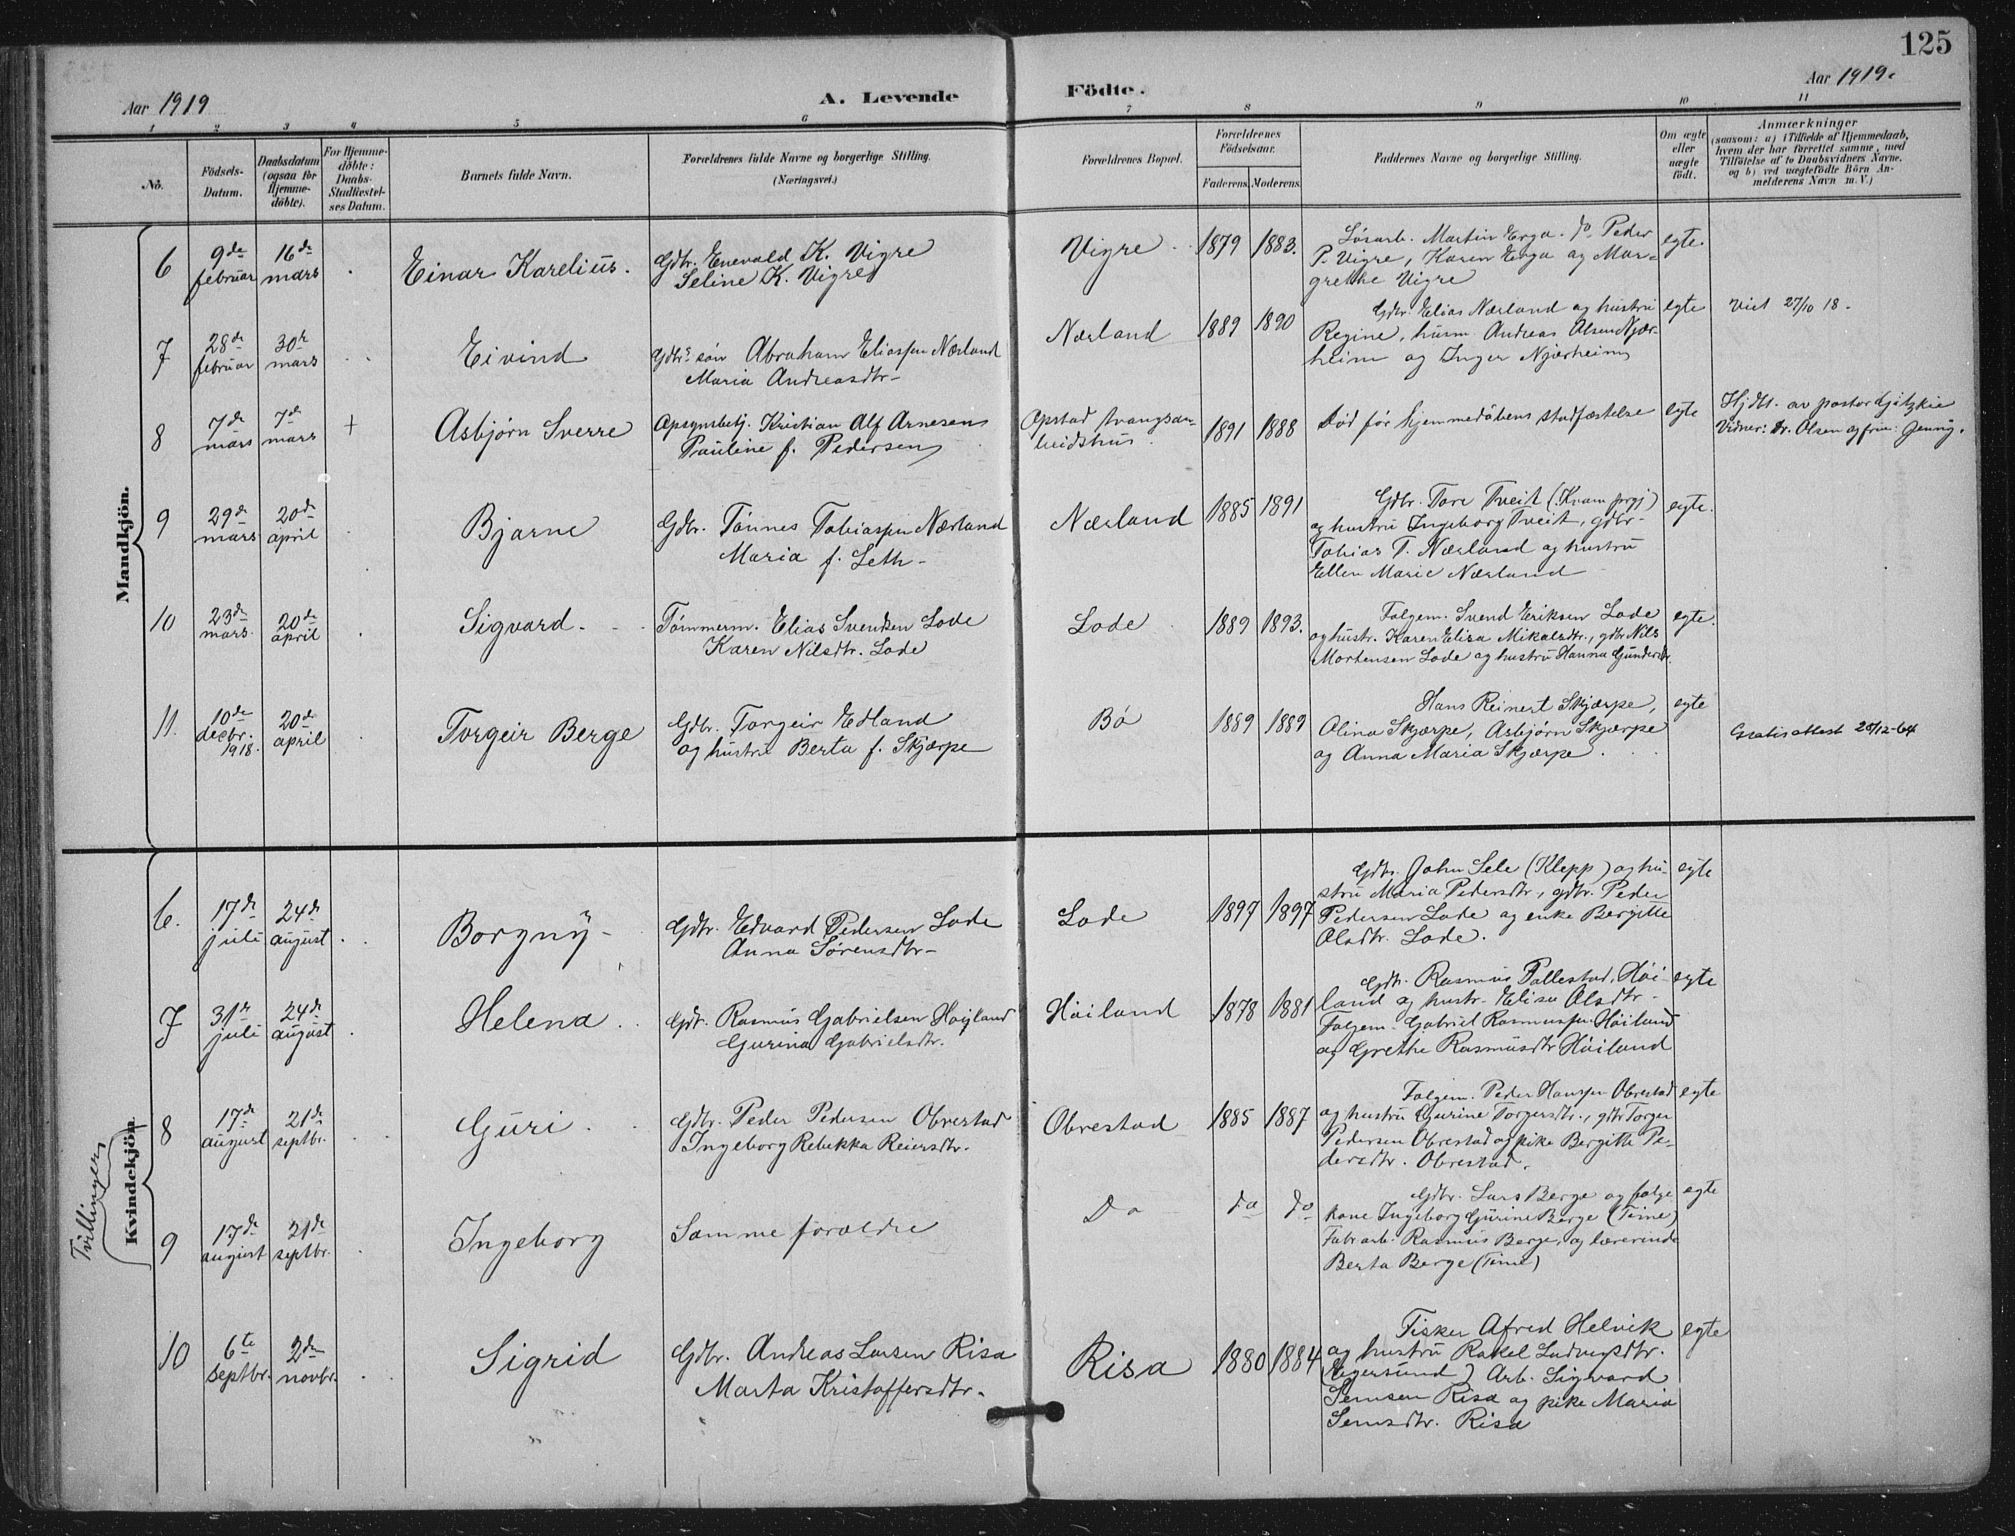 125
Aar 1919
A. Levende
Födte.
Aar 1919.
1 2 3 4 5 6 7 8 9 10 11
No.
Födsels-
Datum.
Daabsdatum
(ogsaa for
Hjemme-
döbte).
For Hjemme-
döbte:
Daabs-
Stadfæstel-
ses Datum.
Barnets fulde Navn.
Forældrenes fulde Navne og borgerlige Stilling.
(Næringsvei.)
Forældrenes Bopæl.
Forældrenes
Födselsaar.
Faderens. Moderens.
Faddernes Navne og borgerlige Stilling.
Om ægte
eller
uægte
födt.
Anmærkninger
(saasom: a) i Tilfælde af Hjemmedaab,
hvem der har forrettet samme, med
Tilföielse af to Daabsvidners Navne,
og b) ved uægtefödte Börn An-
melderens Navn m. V.)
Mandkjön.
6
9de
februar
16de
mars
Einar Karelius.
Gdbr. Enevald K. Vigre
Seline K. Vigre
Vigre
1879 1883.
Løsarb. Martin Erga. do Peder
P. Vigre, Karen Erga og Mar-
grethe Vigre
egte.
7
28de
februar
30de
mars
Eivind
Gdbrs søn Abraham Eliassen Nærland
Maria Andreasdtr
Nærland
1889 1890
Gdbr. Elias Nærland og hustru
Regine, husm. Andreas Olsen Njær-
heim og Inger Njærheim
egte
Viet 27/10 18.
8
7de
mars
7de
mars
+
Asbjørn Sverre
Opsynsbetj. Kristian Alf Arnesen
Pauline f. Pedersen
Opstad tvangsar-
beidshus
1891 1888
Død før hjemmedøbens stadfæstelse
egte
Hjdbt. av pastor
Vidner: Dr. Olsen og fru Jenny.
9
29de
mars
20de
april
Bjarne
Gdbr. Tønnes Tobiassen Nærland
Maria f. Leth
Nærland
1885 1891
Gdbr. Tore Tveit (Kvam prgj)
og hustru Ingeborg Tveit, gdbr.
Tobias T. Nærland og hustru
Ellen Marie Nærland
egte.
10
23de
mars.
20de
april
Sigvard.
Tømmerm. Elias Svendsen Lode
Karen Nilsdtr. Lode
Lode
1889 1893.
Folgem. Svend Eriksen Lode
og hustr. Karen Elisa Mikalsdtr., gdbr Nils
Mortensen Lode og hustru Hanna Gundersdtr.
egte.
11.
10de
decbr.
1918.
20de
april
Torgeir Berge
Gdbr. Torgeir Edland
og hustru Berta f. Skjærpe
Bø
1889 1889
Hans Reinert Skjærpe,
Olina Skjærpe, Asbjørn Skjærpe
og Anna Maria Skjærpe
egte
Gratis attest 20/12-64
Kvindekjön.
Tvillinger
6.
17de
juli
24de
august
Borgny
Gdbr. Edvard Pedersen Lode
Anna Sørensdtr
Lode
1897 1897
Gdbr. John Sele (Klepp) og hu-
stru Maria Pedersdtr, gdbr. Peder
Pedersen Lode og enke Bergitte
Olsdtr. Lode.
egte
7
31de
juli
24de
august
Helena
Gdbr. Rasmus Gabrielsen Høiland
Gurina Gabrielsdtr.
Høiland
1878 1881
Gdbr. Rasmus Pollestad, Høi-
land og hustr. Elisa Olsdtr.
Folgem. Gabriel Rasmussen Høiland
og Grethe Rasmusdtr Høiland
egte
8
17de
august
21de
septbr.
Guri
Gdbr. Peder Pedersen Obrestad
Ingeborg Rebekka Reiersdtr.
Obrestad
1885 1887
Folgem. Peder Hansen Obrestad
og hustru Gurine Torgersdtr., gdbr Torger
Pedersen Obrestad og pike Bergitte Pe-
dersdtr. Obrestad.
egte
9
17de
august
21de
septbr.
Ingeborg
Samme foreldre
Do
do do
Gdbr. Lars Berge og folge
kone Ingeborg Gurine Berge (Time)
Fabr arb. Rasmus Berge, og lærerinde
Berta Berge (Time)
egte
10
6te
septbr.
2den
novbr.
Sigrid
Gdbr. Andreas Larsen Risa
Marta Kristoffersdtr.
Risa
1880 1884
Fisker Alfred Helvik
og hustru Rakel Ludvigsdtr.
(Egersund) Arb. Sigvard
Semsen Risa og pike Maria
Semsdtr. Risa
egte